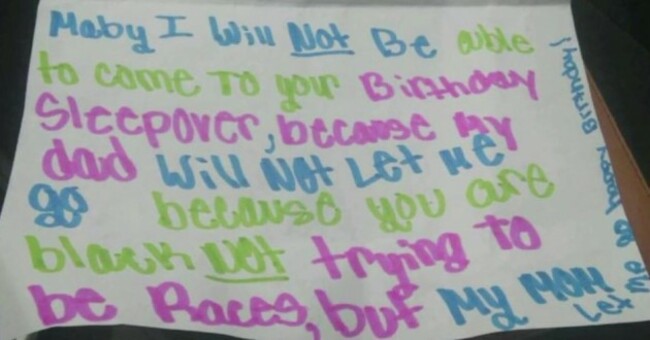 Maby I Will Not Be able
to come To your Birthday
Sleepover, because My
dad Will Not Let Me
go because you are
black Not trying to
be Races, but My Mom
Let me go happy Birthday!